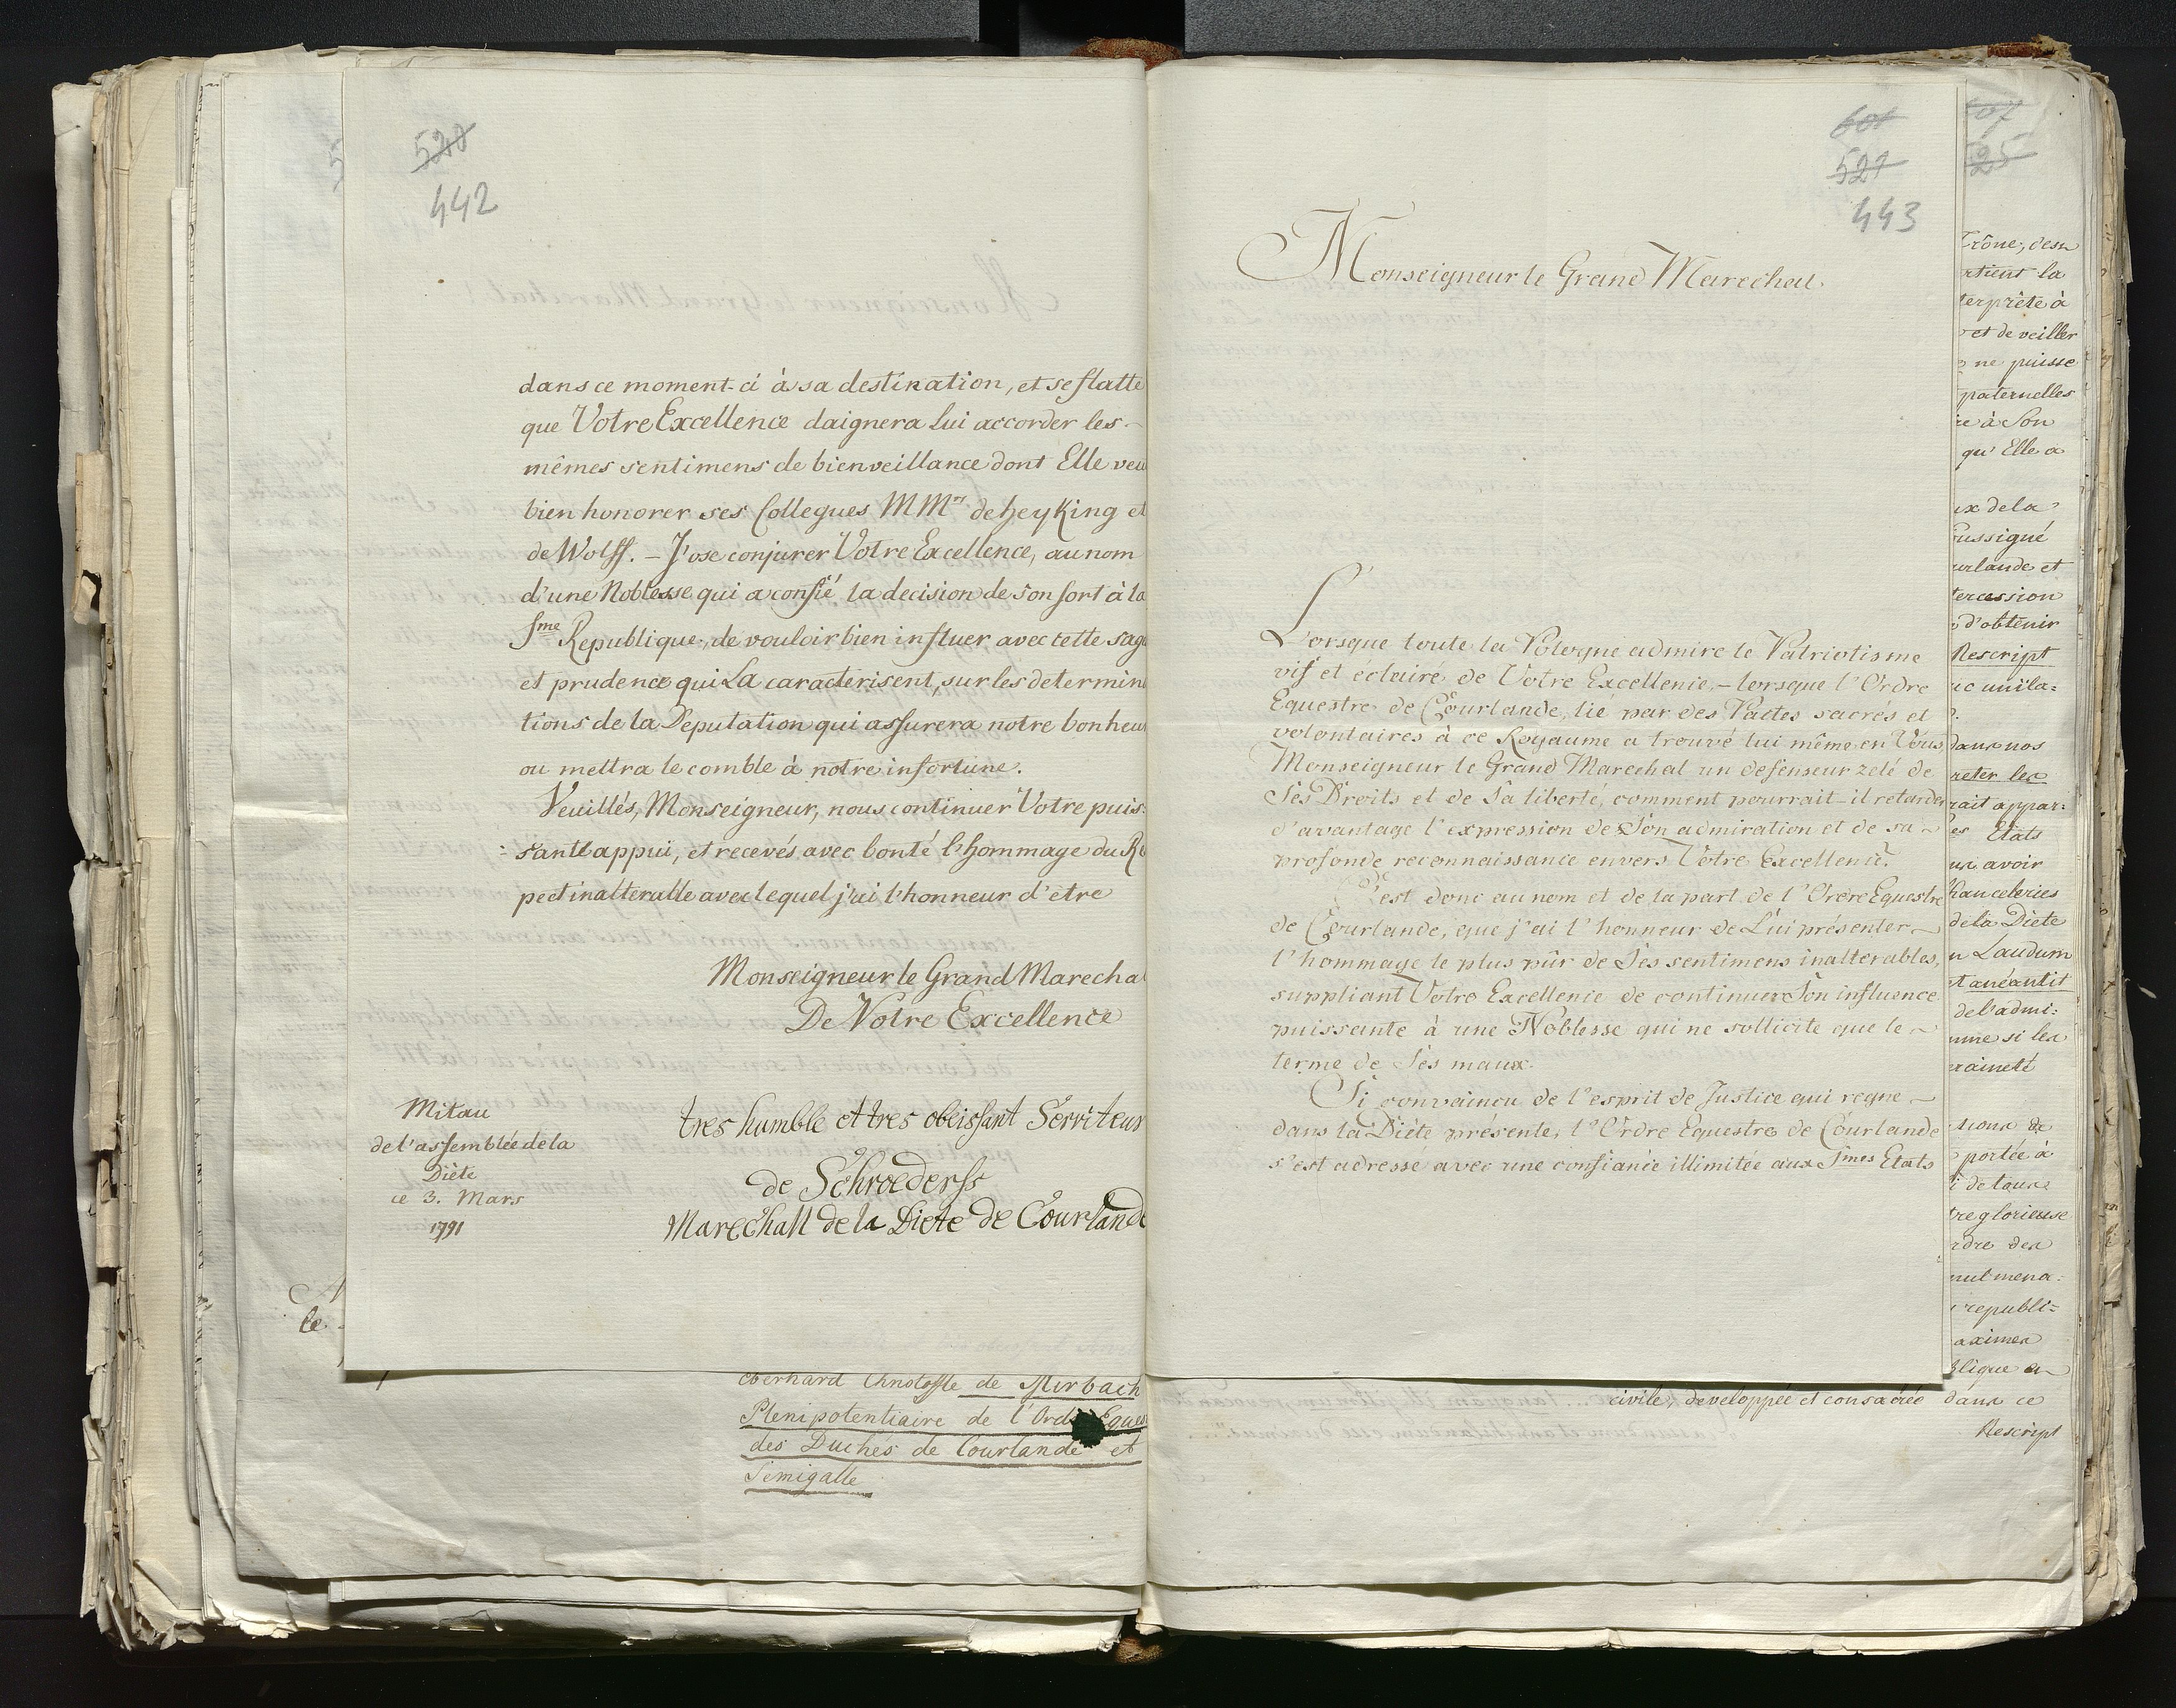 528
442
dans ce moment-ci à sa destination, et se flatte
que Votre Excellence daignera lui accorder les
mêmes sentimens de bienveillance dont Elle veu
bien honorer ses Collegues MMrs de Heyking et
de Wolff. – J'ose conjurer Votre Excellence, au nom
d'une Noblesse qui a confié la decision de son sort à la
Sme Republique, de vouloir bien influer avec cette sag
et prudence qui La caracterisent, sur les determin
tions de la Deputation qui assurera notre bonheur
ou mettra le comble à notre infortune.
Veuillés, Monseigneur, nous continuer Votre puis:
:sante appui, et recevés avec bonté l'hommage du Re
pect inalterable avec lequel j'ai l'honneur d'etre
Monseigneur le Grand Marecha
De Votre Excellence
Mitau
de l'assemblée de la
Diète
ce 3. Mars
1791
tres humble et tres obeissant Serviteur
de Schroederss
Marechall de la Diete de Courlande
le
Eberhard Christofle de Mirbach
Plenipotentiaire de l'Ordre Eques
des Duchés de Courlande et
Semigalle
601
527
443
Monseigneur le Grand Marechal.
Lorsque toute la Pologne admire le Patriotisme
vif et éclairé de Votre Excellence, – lorsque l'Ordre
Equestre de Courlande, lié par des Pactes sacrés et
volontaires à ce Royaume a trouvé lui même en Vous,
Monseigneur le Grand Marechal un defenseur zelé de
Ses Droits et de Sa liberté, comment pourrait-il retarder
d'avantage l'expression de Son admiration et de sa
profonde reconnaissance envers Votre Excellence?
C'est donc au nom et de la part de l'Ordre Equestre
de Courlande, que j'ai l'honneur de Lui présenter
l'hommage le plus pûr de Ses sentimens inalterables,
suppliant Votre Excellence de continuer Son influence
puissante à une Noblesse qui ne sollicite que le
terme de Ses maux.
Si convaincu de l'esprit de Justice qui regne
dans la Diète présente, l'Ordre Equestre de Courlande
s'est adressé avec une confiance illimitée aux Smes Etats
607
525
Trône, des
rtient la
terprête à
et de veiller
ne puisse
paternelles
re à Son
qu'Elle a
ux de la
oussigné
urlande et
tercession
d'obtenir
Rescript
ic unila:
dans nos
reter les
rait appar:
es Etats
ux avoir
hanceleries
de la Diete
n Laudum
et anéantit
de l'admi:
mme si les
raineté
sions de
portée à
i de tous
tre glorieuse
rdre des
nul mena:
republi:
aximes
blique en
civile, developpée et consacrée dans ce
Rescript